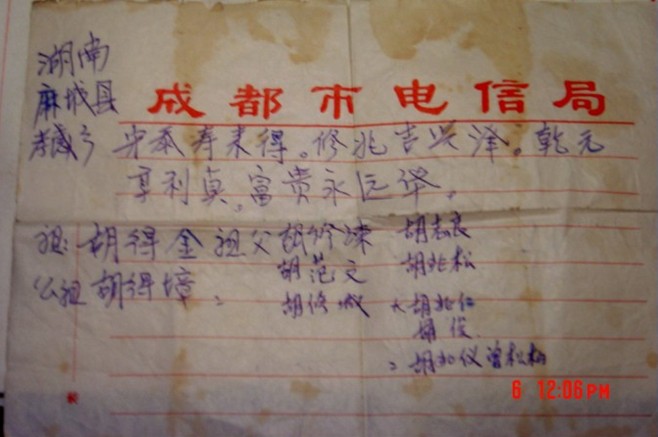 成都市电信局
湖南
麻城县
孝感乡 守泰寿来得。修兆吉兴泽。乾元
亨利贞。富贵永远华。
祖:胡得金祖父胡 胡志良
胡范文 胡兆松
公祖胡得璋 胡修成 胡兆仁
胡俊
胡兆仪曾松柏
6 12:06PM